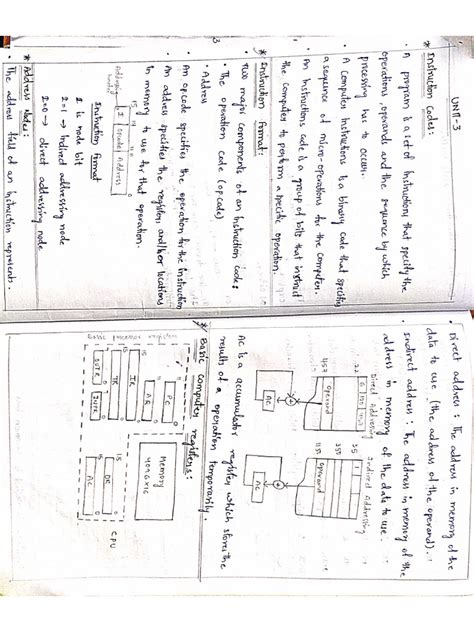 UNIT-3
* Instruction Codes:
• A program is a set of instructions that specify the
operations, operands and the sequence by which
processing has to occur.
• A Computer Instructions is a binary code that specifies
a sequence of micro-operations for the computer.
• An Instruction code is a group of bits that instruct
the computer to perform a specific operation.
* Instruction Format:
• Two major components of an Instruction code:
• The operation code (opcode)
• Address
• An opcode specifies the operation for the instruction
• An address specifies the registers and/or locations
in memory to use for that operation.
15 14 12 11 0
I Opcode Address
Addressing
Instruction Format
I is node bit
I=1 → Indirect addressing node
I=0 → direct addressing node
* Address Nodes:
• The address field of an Instruction represents.
• Direct address: The address in memory of the
data to use (the address of the operand).
• Indirect address: The address in memory of the
address in memory of the data to use.
Direct Addressing
Indirect Addressing
22
35
457
Operand
Operand
AC
AC
AC is a accumulator register which stores the
results of a operation temporarily.
* Basic Computer registers:
PC
AR
IR
TR
OUTR
INPR
DR
AC
Memory
CPU
Basic processor registers